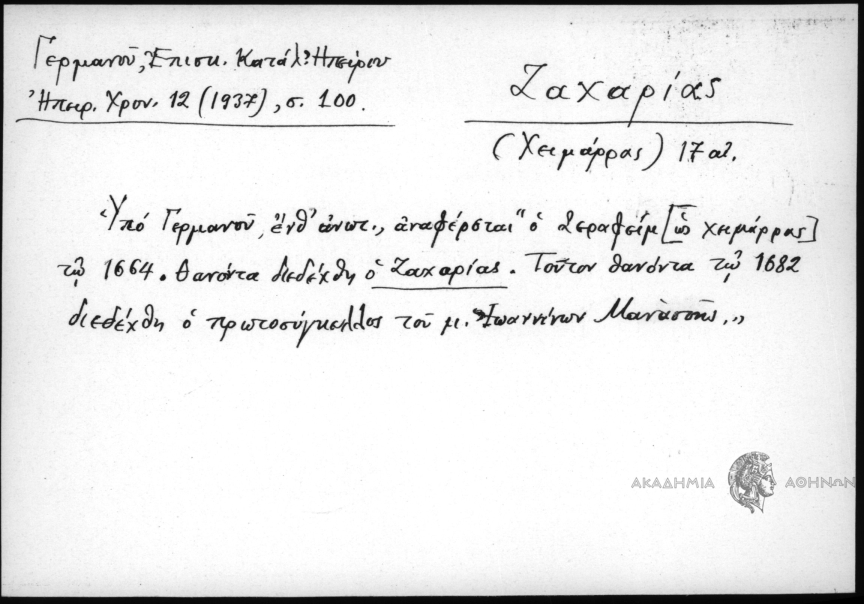 Γερμανοῦ, Ἐπισκ. Κατάλ. Ἠπείρου
Ἠπειρ. Χρον. 12 (1937), σ. 100.
Ζαχαρίας
(Χειμάρρας) 17 αἰ.
Ὑπό Γερμανοῦ, ἔνθ' ἀνωτ., ἀναφέρεται "ὁ Σεραφείμ [ὡς χειμάρρας]
τῷ 1664. θανόντα διεδέχθη ὁ Ζαχαρίας. Τοῦτον θανόντα τῷ 1682
διεδέχθη ὁ πρωτοσύγκελλος τοῦ μ. Ἰωαννίνων Μανασσῆς."
ΑΚΑΔΗΜΙΑ ΑΘΗΝΩΝ